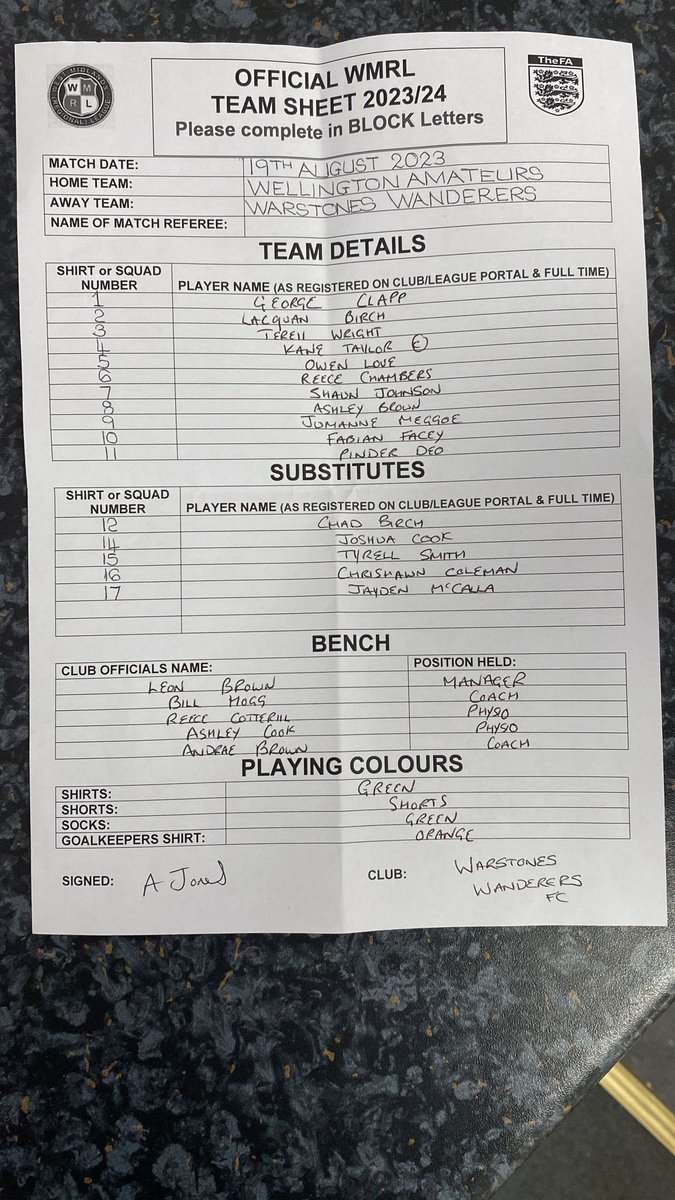 WEST MIDLANDS
WM
RL
REGIONAL LEAGUE
OFFICIAL WMRL
TEAM SHEET 2023/24
Please complete in BLOCK Letters
TheFA
MATCH DATE: 19TH AUGUST 2023
HOME TEAM: WELLINGTON AMATEURS
AWAY TEAM: WARSTONES WANDERERS
NAME OF MATCH REFEREE:
TEAM DETAILS
SHIRT or SQUAD NUMBER PLAYER NAME (AS REGISTERED ON CLUB/LEAGUE PORTAL & FULL TIME)
1 GEORGE CLAPP
2 LACQUAN BIRCH
3 TERELL WRIGHT
4 KANE TAYLOR (C)
5 OWEN LOVE
6 REECE CHAMBERS
7 SHAUN JOHNSON
8 ASHLEY BROWN
9 JUMANNE MEGGOE
10 FABIAN FACEY
11 PINDER DEO
SUBSTITUTES
SHIRT or SQUAD NUMBER PLAYER NAME (AS REGISTERED ON CLUB/LEAGUE PORTAL & FULL TIME)
12 CHAD BIRCH
14 JOSHUA COOK
15 TYRELL SMITH
16 CHRISHAWN COLEMAN
17 JAYDEN McCALLA
BENCH
CLUB OFFICIALS NAME: POSITION HELD:
LEON BROWN MANAGER
BILL MOGG COACH
REECE COTTERILL PHYSO
ASHLEY COOK PHYSO
ANDRAE BROWN COACH
PLAYING COLOURS
SHIRTS: GREEN
SHORTS: SHORTS
SOCKS: GREEN
GOALKEEPERS SHIRT: ORANGE
SIGNED: A Jones CLUB: WARSTONES
WANDERERS
FC